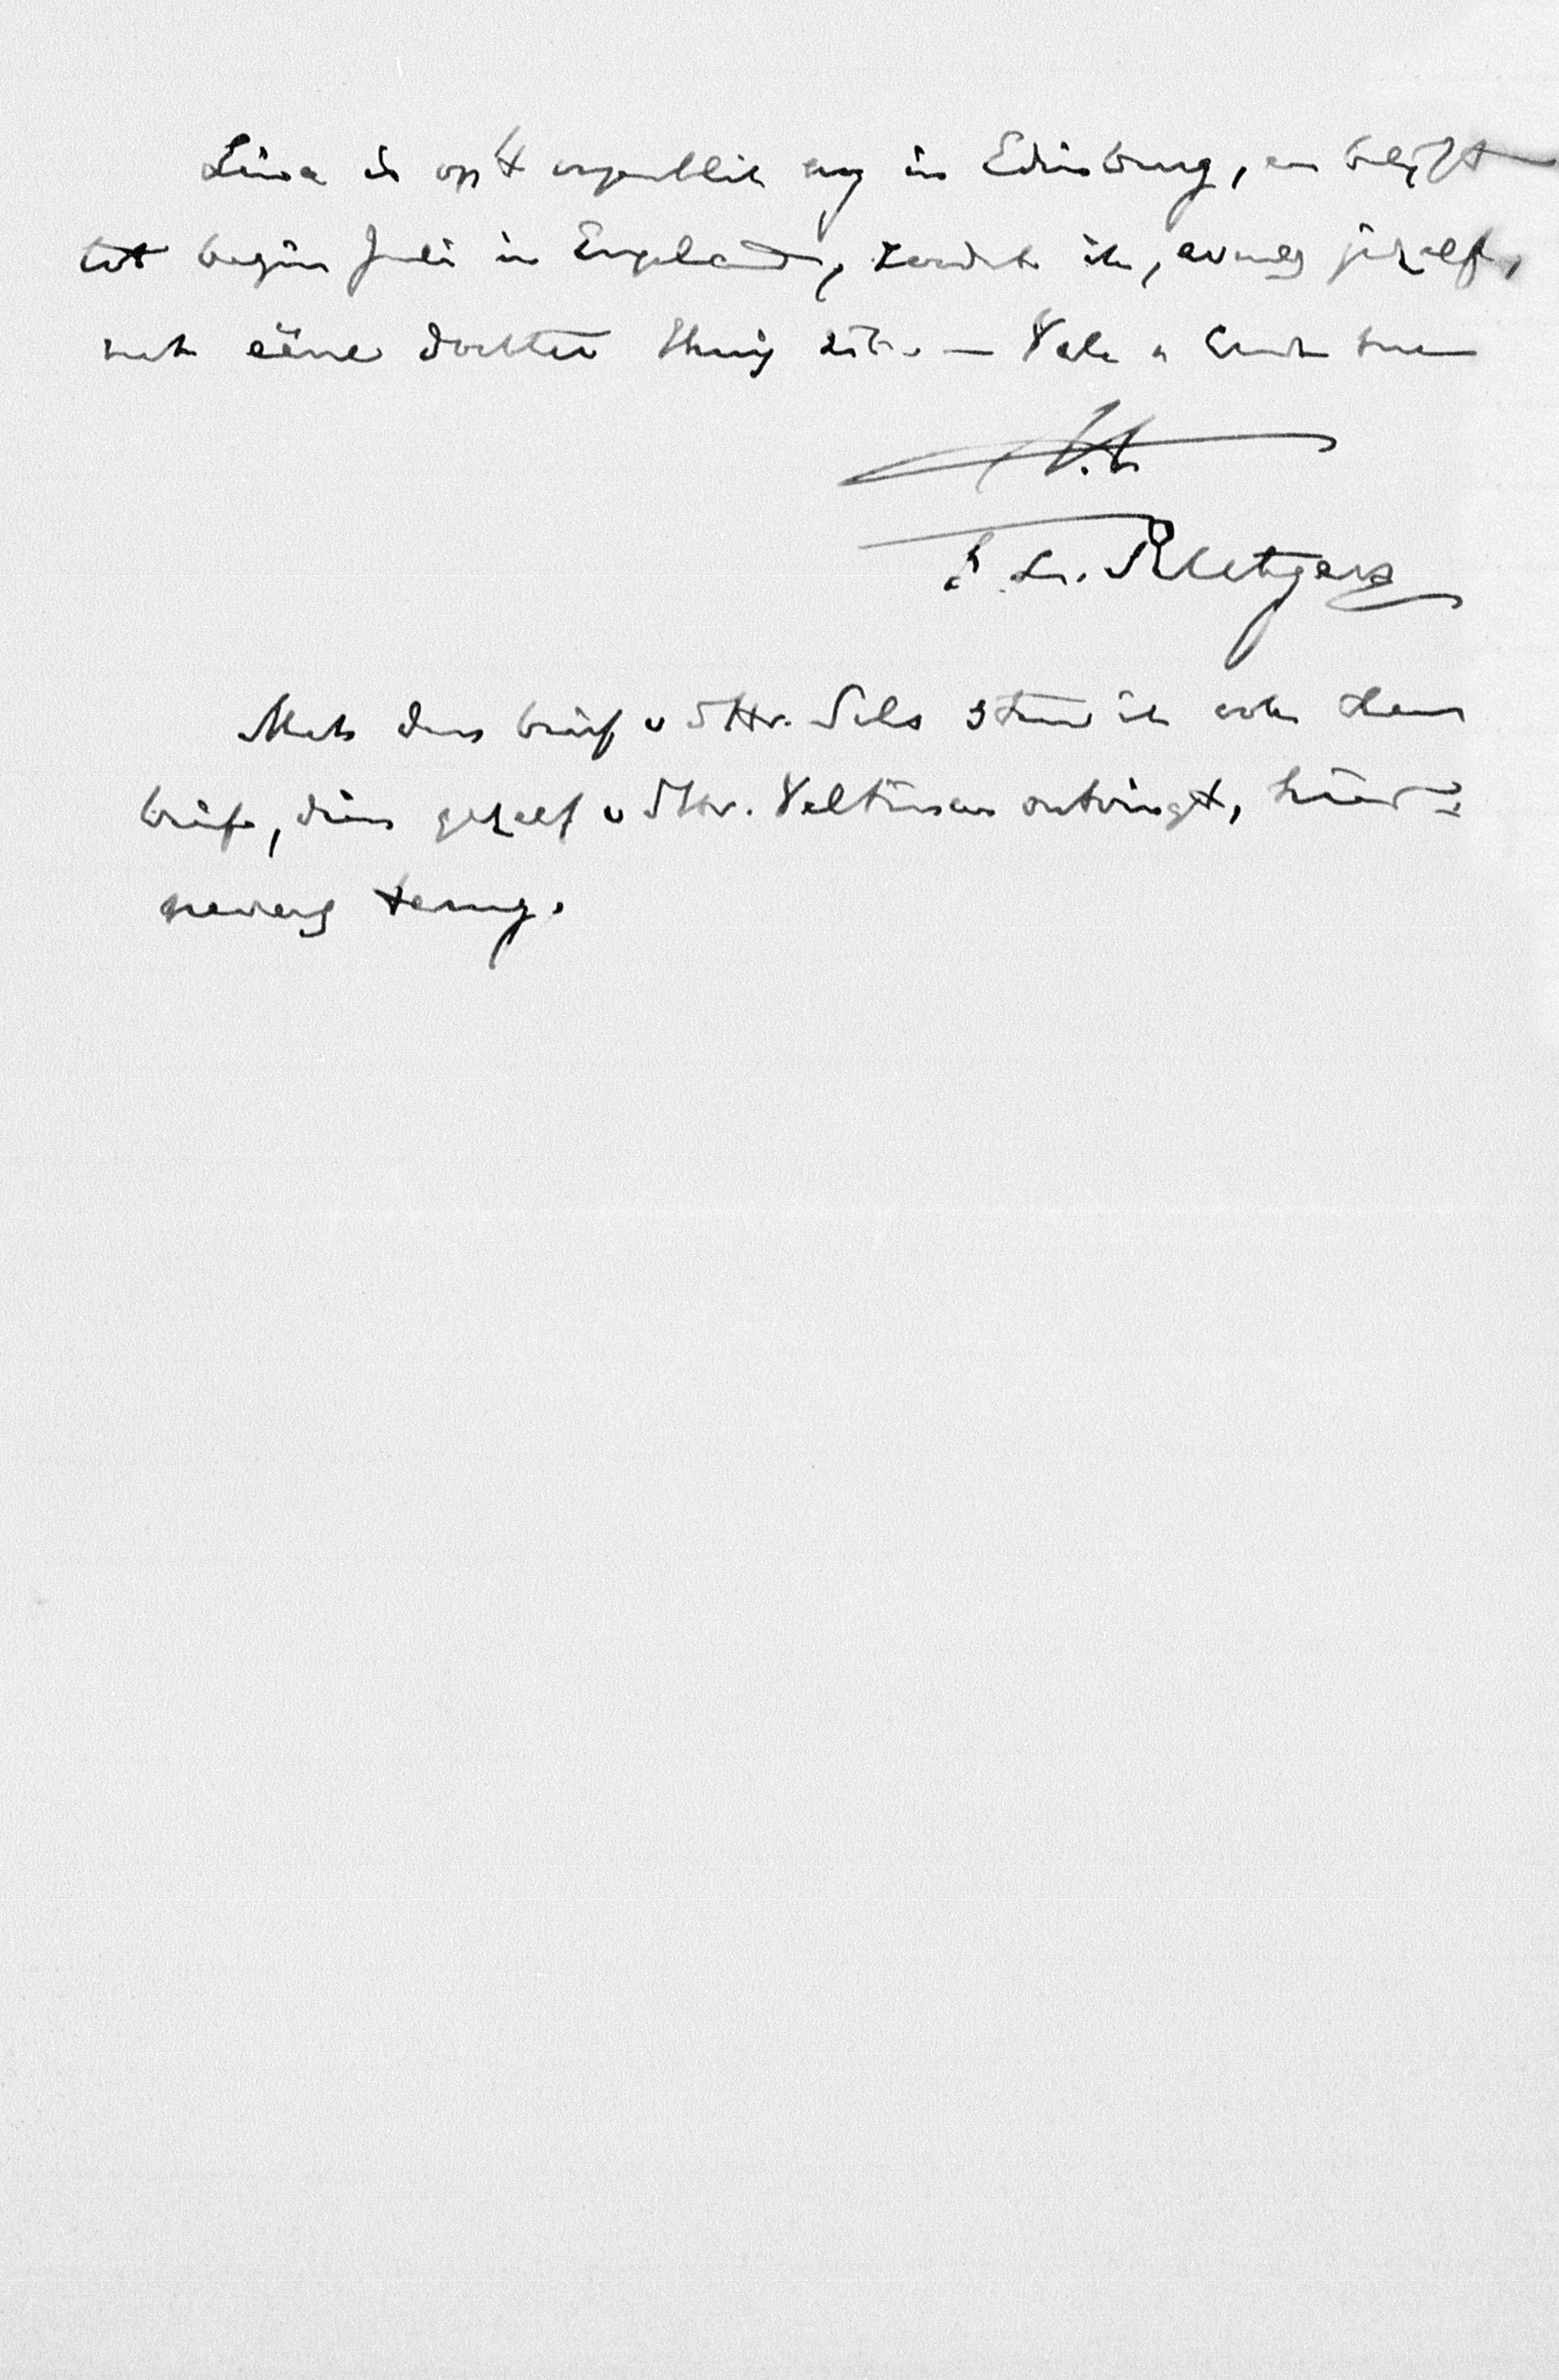 Lina is op 't oogenblik nog in Edinburg, en blijft
tot begin Juli in England, zoodat ik, evenals jijzelf,
met ééne dochter thuis zit. — Vale
t.t.
F. L. Rutgers
Met den brief v. d. Hr. Sels stuur ik ook den
brief, dien gezelf v. d. Hr. Veltman ontvingt, hier-
nevens terug.